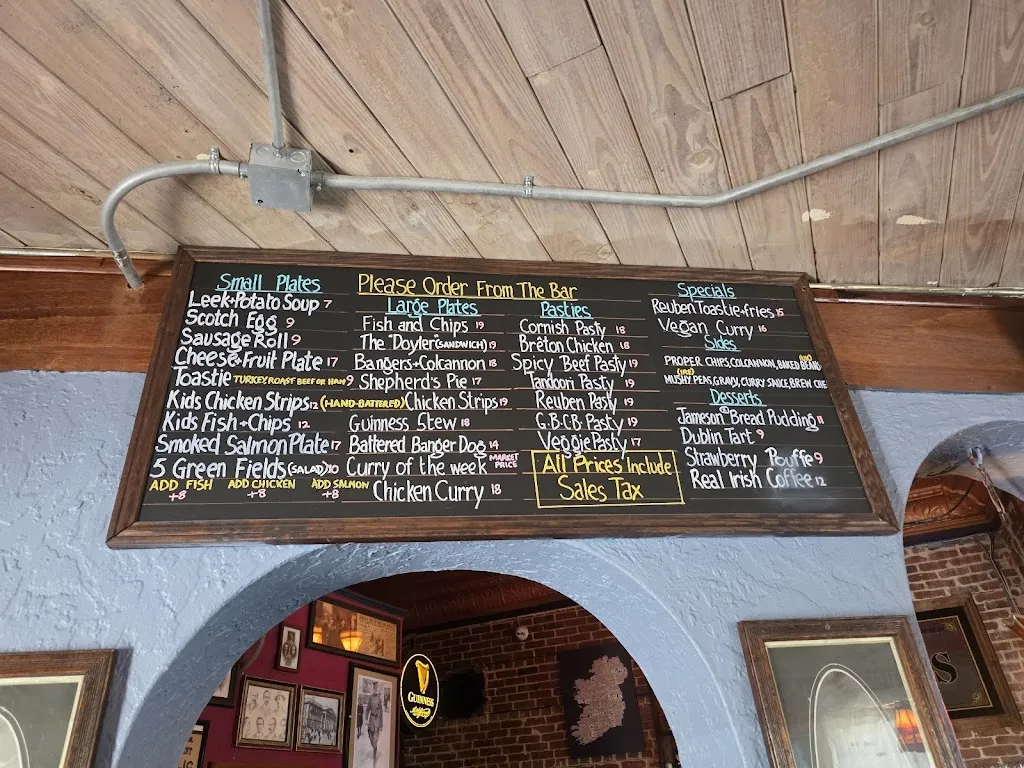 Please Order From The Bar
Small Plates
Leek+Potato Soup 7
Scotch Egg 9
Sausage Roll 9
Cheese+Fruit Plate 17
Toastie TURKEY, ROAST BEEF OR HAM 9
Kids Chicken Strips 12
Kids Fish+Chips 12
Smoked Salmon Plate 17
5 Green Fields (SALAD) 10
ADD FISH +8 ADD CHICKEN +8 ADD SALMON +8
Large Plates
Fish and Chips 19
The "Doyler" (SANDWICH) 19
Bangers+Colcannon 18
Shepherd's Pie 17
(HAND-BATTERED) Chicken Strips 19
Guinness Stew 18
Battered Banger Dog 14
Curry of the week MARKET PRICE
Chicken Curry 18
Pasties
Cornish Pasty 18
Brèton Chicken 18
Spicy Beef Pasty 19
Tandoori Pasty 19
Reuben Pasty 19
G.B.C.B Pasty 19
Veggie Pasty 17
All Prices Include
Sales Tax
Specials
Reuben Toastie+fries 15
Vegan Curry 16
Sides
PROPER CHIPS, COLCANNON, BAKED BEANS
MUSHY PEAS, GRAVY, CURRY SAUCE, BREW
Desserts
Jameson Bread Pudding 11
Dublin Tart 9
Strawberry Pouffe 9
Real Irish Coffee 12
GUINNESS